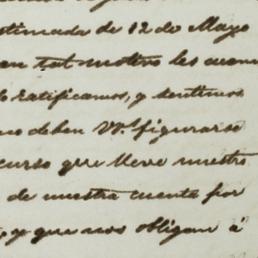 stimada de 12 de Mayo
tal motivo les
ratificamos, y sentimos
deben VV. figurarse
curso que lleve nuestro
de nuestra cuenta por
y que nos obligan á